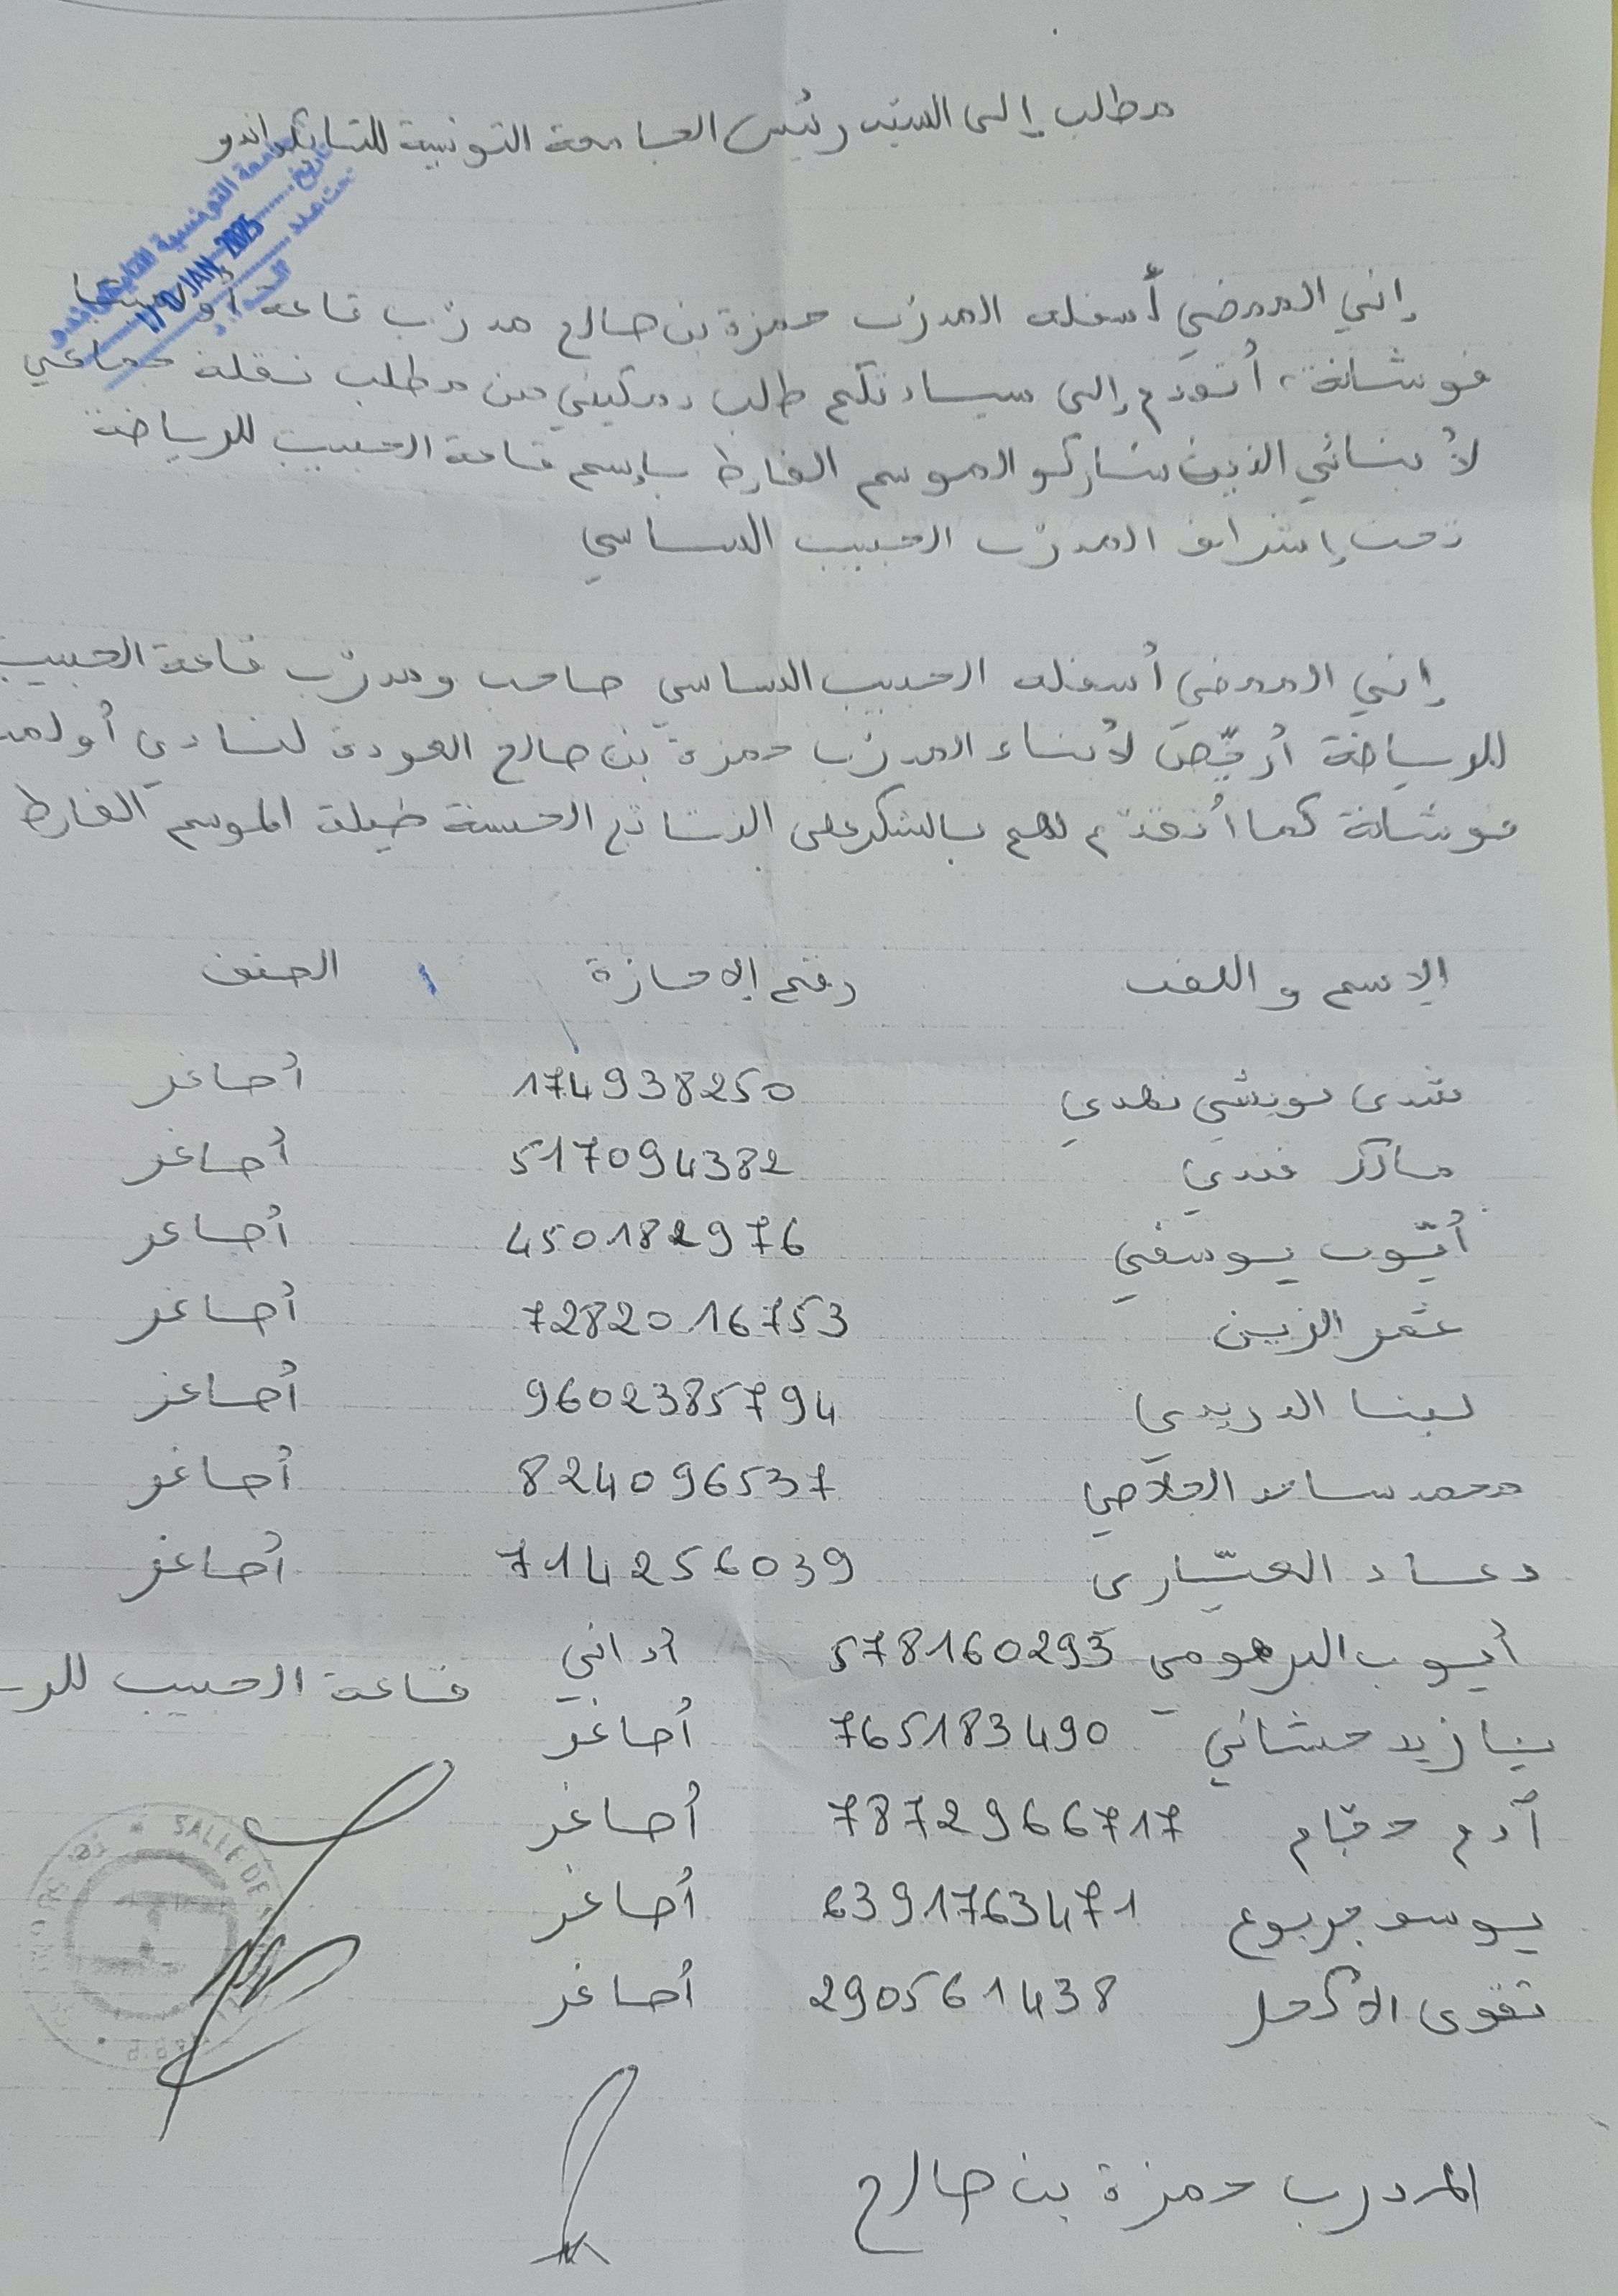 مطلب إلى السيد رئيس الجامعة التونسية للتايكواندو
الجامعة التونسية للتايكواندو
تاريخ
17 JAN. 2025
تحت عدد
إني الممضي أسفله المدرّب حمزة بن صالح مدرّب قاعة أولمبيا
فوشانة، أتقدم إلى سيادتكم طلب تمكيني من مطلب نقلة جماعي
لأبنائي الذين شاركو الموسم الفارط بإسم قاعة الحبيب للرياضة
تحت إشراف المدرّب الحبيب الساسي
إني الممضي أسفله الحبيب الساسي صاحب ومدرّب قاعة الحبيب
للرياضة أرخّص لأبناء المدرّب حمزة بن صالح العودة لنادي أولمب
فوشانة كما أتقدّم لهم بالشكر على النتائج الحسنة طيلة الموسم الفارط
الإسم واللقب رقم الإجازة الصنف
شدى نويشي نهدي 174938250 أصاغر
517094382 أصاغر
أيّوب يوسفي 450182976 أصاغر
عمر الزين 7282016753 أصاغر
لينا الدريدي 9602385794 أصاغر
محمد ساند الجلاصي 824096537 أصاغر
دعاد العيّاري 714256039 أصاغر
أيوب البرهومي 578160293 أداني
قاعة الحبيب للر
يزيد حشاني 765183490 أصاغر
آدم حجّام 7872966717 أصاغر
SALLE DE
يوسف جربوع 6391763471 أصاغر
تقوى الأكحل 290561438 أصاغر
المدرب حمزة بن صالح